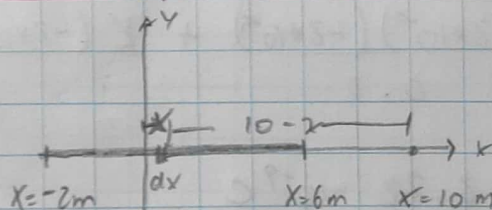 y
x
10-x
x
dx
x=-2m
x=6m
x=10 m